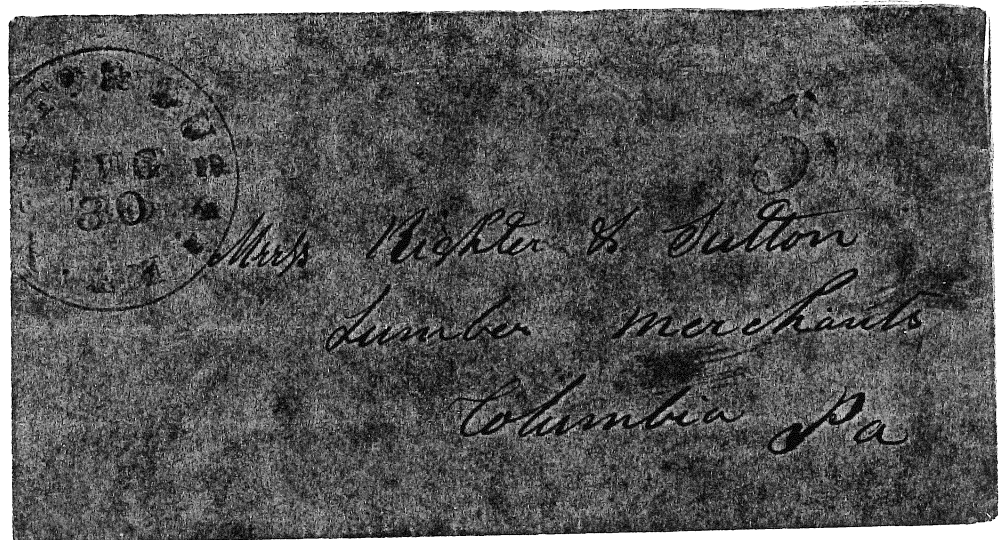 AUG
30
5
Mess Righter & Sutton
Lumber merchants
Columbia Pa